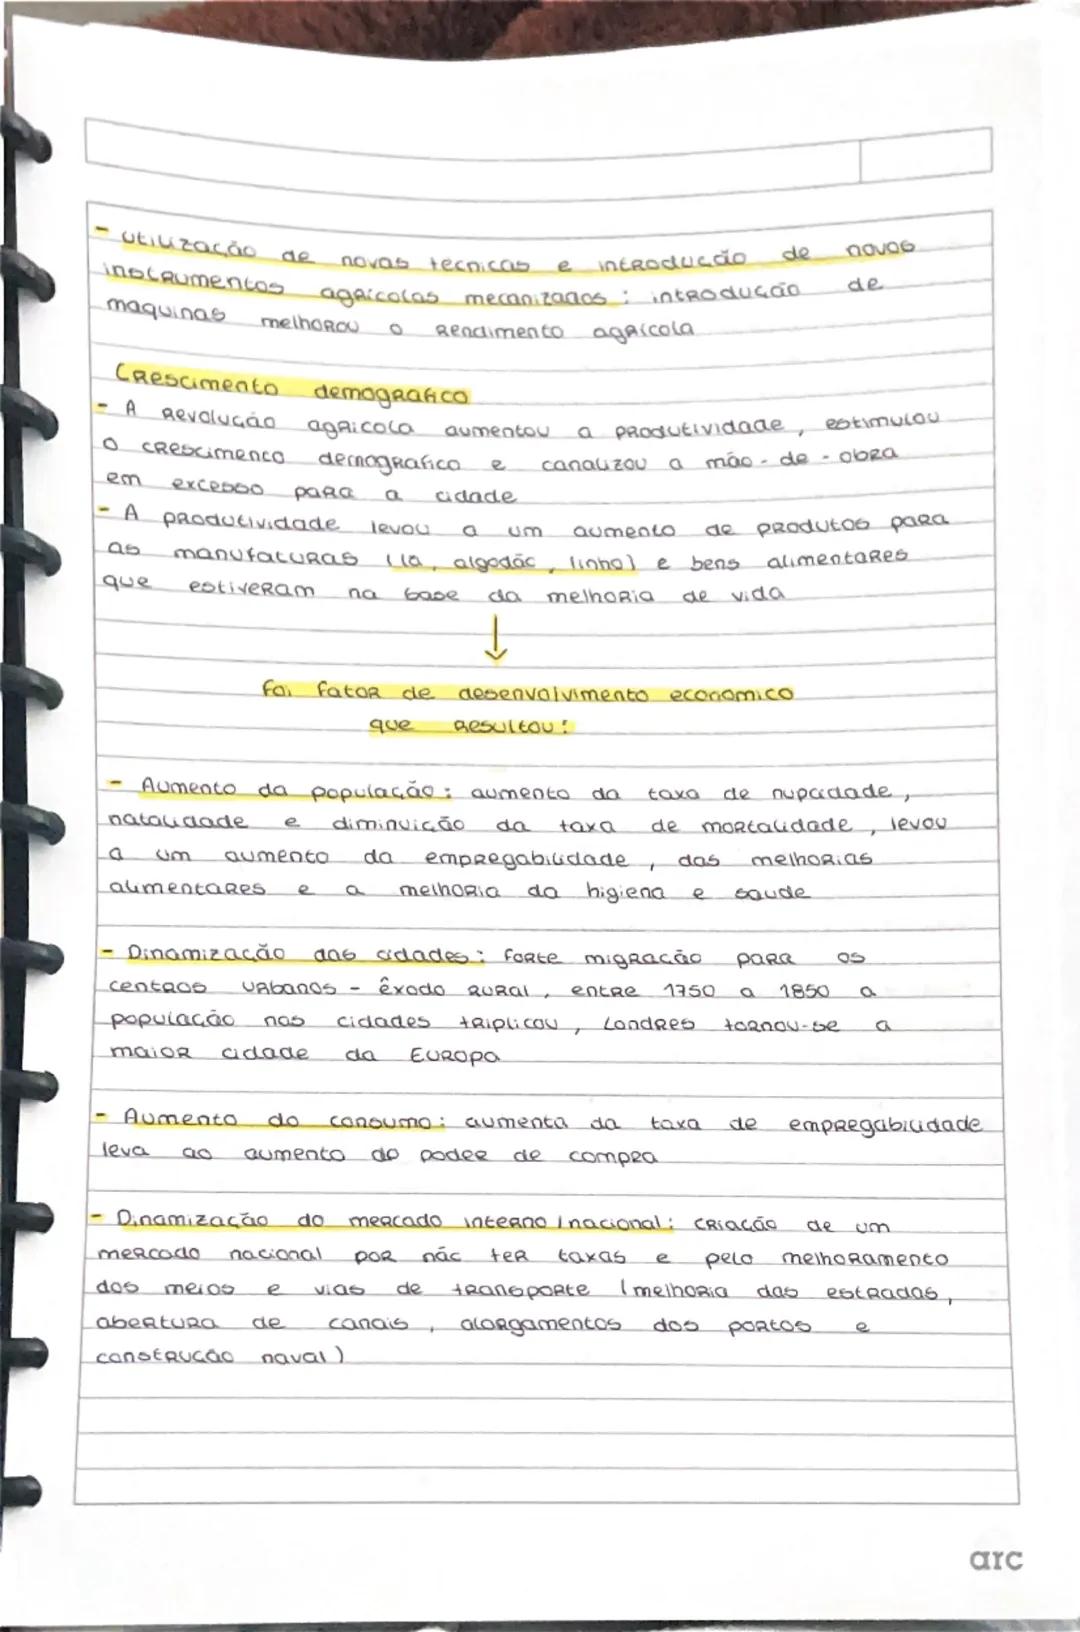 - utilização de novas tecnicas e introdução de novos
instrumentos agricolas mecanizados: introdução de
maquinas melhorou o rendimento agricola
Crescimento demografico
- A revolução agricola aumentou a produtividade, estimulou
o crescimento demografico e canalizou a mão-de-obra
em excesso para a cidade
- A produtividade levou a um aumento de produtos para
as manufaturas (lã, algodão, linho) e bens alimentares
que estiveram na base da melhoria de vida
↓
Foi fator de desenvolvimento economico
que resultou:
- Aumento da população: aumento da taxa de nupcidade,
natalidade e diminuição da taxa de mortalidade, levou
a um aumento da empregabilidade, das melhorias
alimentares e a melhoria da higiena e saude
- Dinamização das cidades: forte migração para os
centros urbanos - êxodo rural, entre 1750 a 1850 a
população nas cidades triplicou, Londres tornou-se a
maior cidade da Europa
- Aumento do consumo: aumenta da taxa de empregabilidade
leva ao aumento do poder de compra
- Dinamização do mercado interno/nacional: criação de um
mercado nacional por não ter taxas e pelo melhoramento
dos meios e vias de transporte (melhoria das estradas,
abertura de canais, alargamentos dos portos e
construção naval)
arc